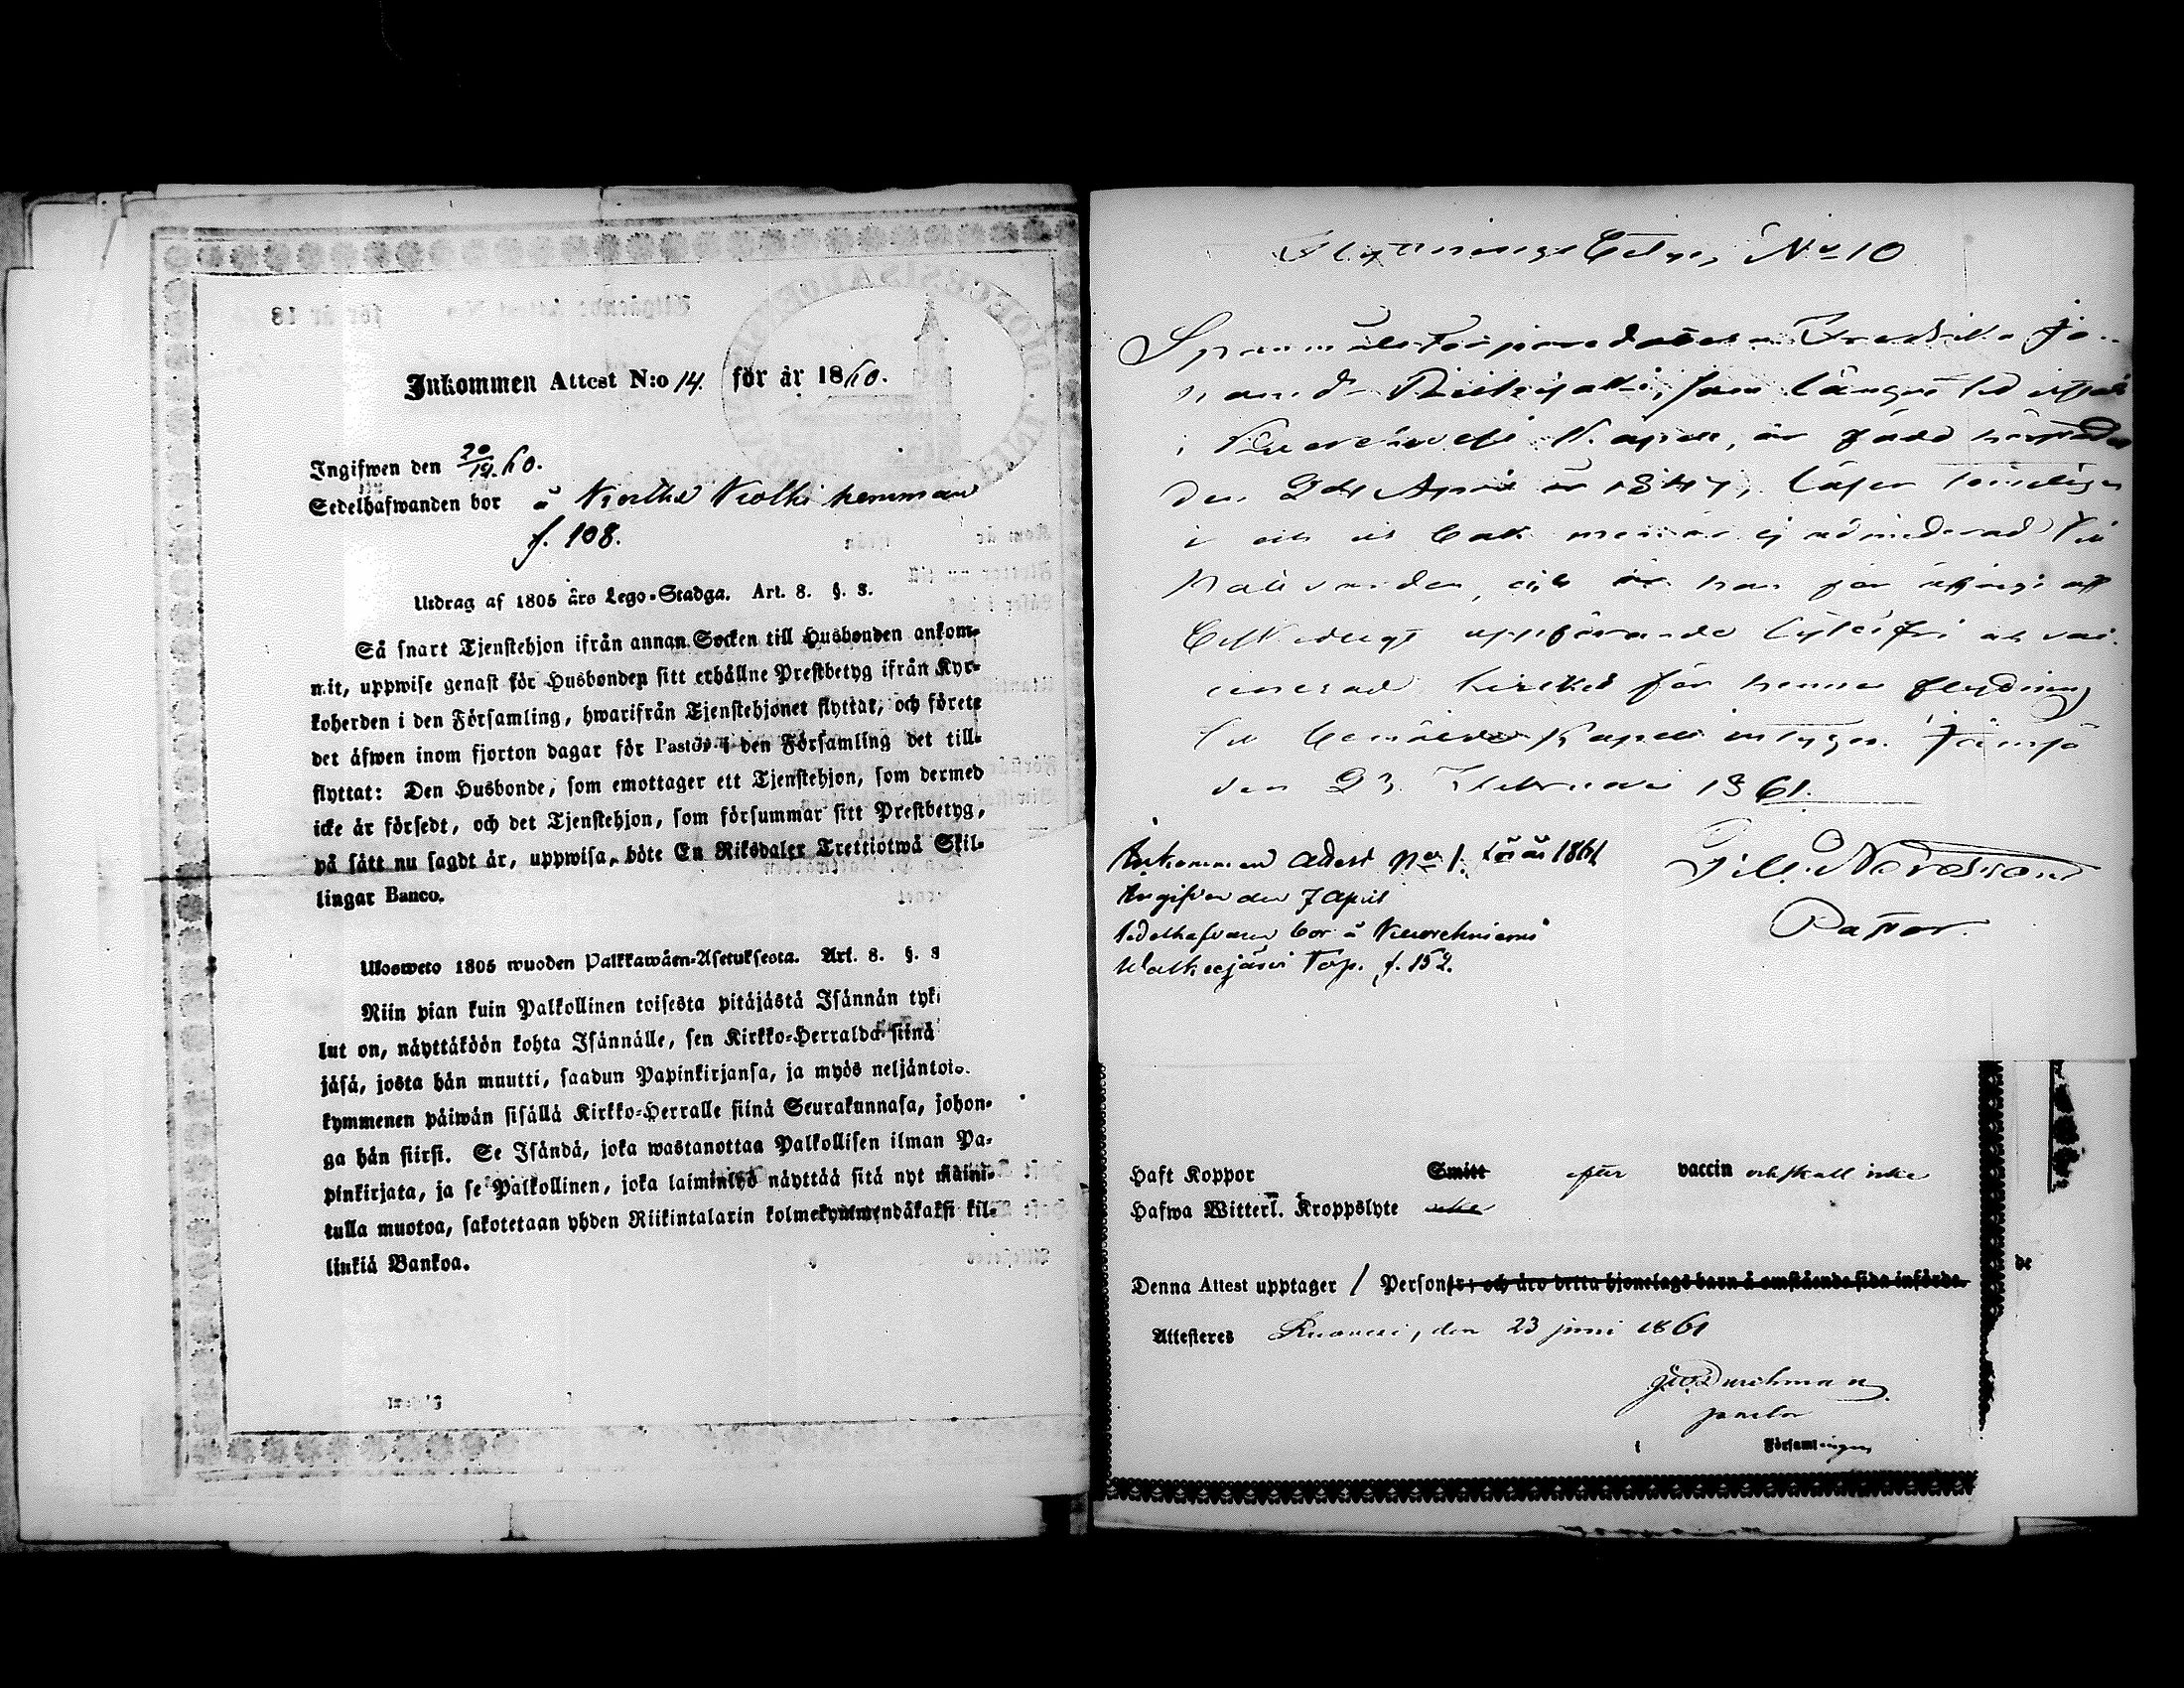 Inkommen Attest N:o 14. för år 1860.
Ingifwen den 20/12. 60.
Sedelhafwanden bor å Kolki hemman
f. 108.
Utdrag af 1805 års Lego-Stadga. Art. 8. §. 8.
Så snart Tjenstehjon ifrån annan Socken till Husbonden ankom-
mit, uppwise genast för Husbonden sitt erhållne Prestbetyg ifrån Kyr-
koherden i den Församling, hwarifrån Tjenstehjonet flyttat, och förete
det äfwen inom fjorton dagar för Pastor i den Församling det till-
flyttat: Den Husbonde, som emottager ett Tjenstehjon, som dermed
icke är försedt, och det Tjenstehjon, som försummar sitt Prestbetyg,
på sätt nu sagdt är, uppwisa, böte En Riksdaler Trettiotwå Skil-
lingar Banco.
Ulosweto 1805 wuoden Palkkawäen-Asetuksesta. Art. 8. §. 8
Niin pian kuin Palkollinen toisesta pitäjästä Isännän tyk
lut on, näyttäköön kohta Isännälle, sen Kirkko-Herralda siinä
jäsä, josta hän muutti, saadun Papinkirjansa, ja myös neljäntoi-
kymmenen päiwän sisällä Kirkko-Herralle siinä Seurakunnasa, johon-
ga hän siirsi. Se Isändä, joka wastanottaa Palkollisen ilman Pa-
pinkirjata, ja se Palkollinen, joka laiminlyö näyttää sitä nyt maini-
tulla muotoa, sakotetaan yhden Riikintalarin kolmekymmendäkaksi kil-
linkiä Bankoa.
Flyttnings Betyg No 10
Fredrika Jo-
hansdr som länge
i Kapell, är född härstädes
den 24 April 1847, läser
i och ut bok men är ej admitterad till
Nattvarden, och har för öfrigt af
uppförande lytesfri och vac-
cinerad hinder för hennes flyttning
till Kapell intyger. Jämsä
den 23 Februari 1861.
Pastor.
Inkommen attest No 1. för år 1861
Ingifven den 7 April
sedelhafvaren bor å Kuorehniemi
Walkeejärvi Torp. f. 152.
Haft Koppor Smitt efter vaccin och skall icke
Hafwa Witterl. Kroppslyte icke
Denna Attest upptager 1 Personer: och äro detta hjonelags barn å omstående sida införde.
de
Attesteres Ruovesi, den 23 juni 1861
pastor
i Församlingen